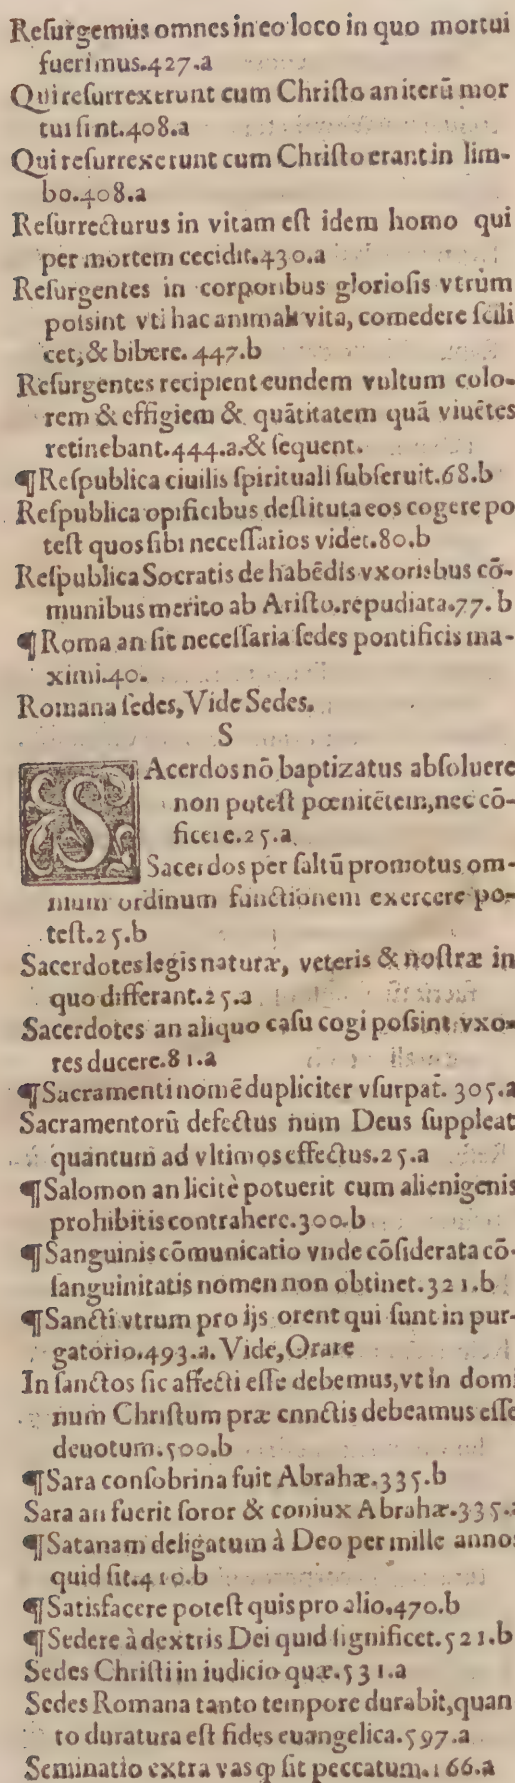 Reſurgemus omnes in eo loco in quo mortui
fuerimus.427.a
Qui reſurrexerunt cum Chriſto an iterũ mor
tui ſint.408.a
Qui reſurrexerunt cum Chriſto erant in lim-
bo.408.a
Reſurrecturus in vitam eſt idem homo qui
per mortem cecidit.430.a
Reſurgentes in corporibus glorioſis vtrùm
poſsint vti hac animali vita, comedere ſcili
cet, & bibere. 447.b
Reſurgentes recipient eundem vultum colo-
rem & effigiem & quãtitatem quã viuẽtes
retinebant.444.a.& ſequent.
¶Reſpublica ciuilis ſpirituali ſubſeruit.68.b
Reſpublica opificibus deſtituta eos cogere po
teſt quos ſibi neceſſarios videt.80.b
Reſpublica Socratis de habẽdis vxoribus cõ-
munibus merito ab Ariſto.repudiata.77.b
¶Roma an ſit neceſſaria ſedes pontificis ma-
ximi.40.
Romana ſedes, Vide Sedes.
S
SAcerdos nõ baptizatus abſoluere
non poteſt pœnitẽtem, nec cõ-
ficere.25.a
Sacerdos per ſaltũ promotus om-
nium ordinum functionem exercere po-
teſt.25.b
Sacerdotes legis naturæ, veteris & noſtræ in
quo differant.25.a
Sacerdotes an aliquo caſu cogi poſsint vxo-
res ducere.81.a
¶Sacramenti nomẽ dupliciter vſurpat. 305.a
Sacramentorũ defectus num Deus ſuppleat
quantum ad vltimos effectus.25.a
¶Salomon an licitè potuerit cum alienigenis
prohibitis contrahere.300.b
¶Sanguinis cõmunicatio vnde cõſiderata cõ-
ſanguinitatis nomen non obtinet.321.b
¶Sancti vtrum pro ijs orent qui ſunt in pur-
gatorio.493.a. Vide, Orare
In ſanctos ſic affecti eſſe debemus, vt in domi
num Chriſtum præ cnnctis debeamus eſſe
deuotum.500.b
¶Sara conſobrina fuit Abrahæ.335.b
Sara an fuerit ſoror & coniux Abrahæ.335.
¶Satanam deligatum à Deo per mille annos
quid ſit.410.b
¶Satisfacere poteſt quis pro alio.470.b
¶Sedere à dextris Dei quid ſignificet.521.b
Sedes Chriſti in iudicio quæ.531.a
Sedes Romana tanto tempore durabit, quan
to duratura eſt fides euangelica.597.a
Seminatio extra vas ꝙ ſit peccatum.166.a